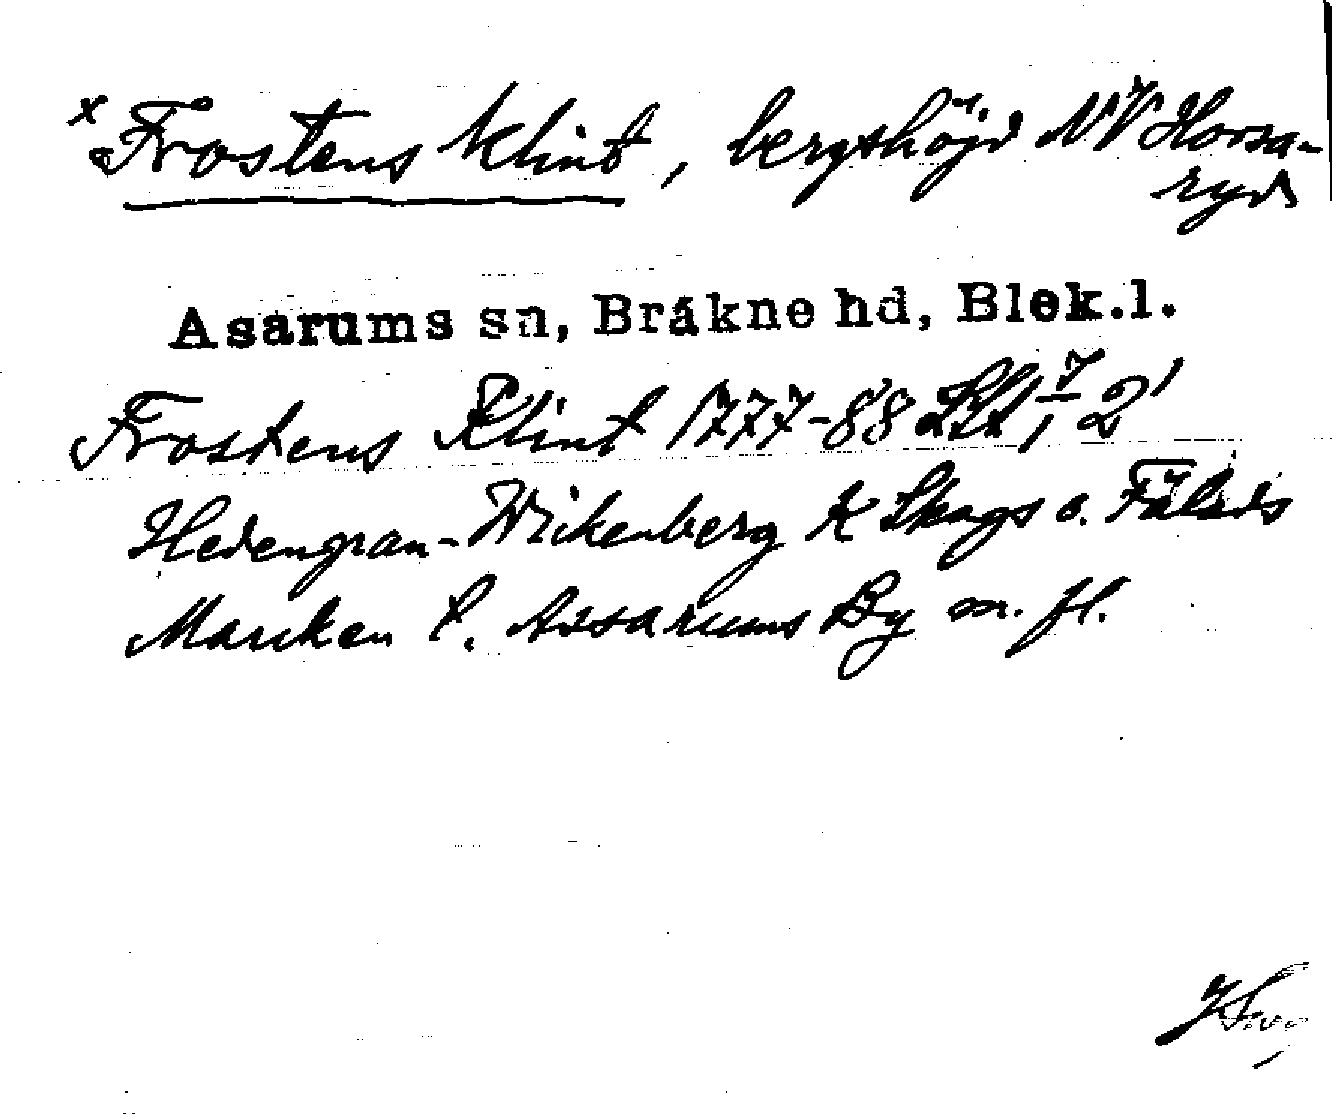 x Frostens klint, bergshöjd NV Horsa-
ryd
Asarums sn, Bräkne hd, Blek.l.
Frostens Klint 1777-88 7/1 2'
Hedengran-Wikenberg K Skogs o. Fälads
Marcken t. Assarums By m. fl.